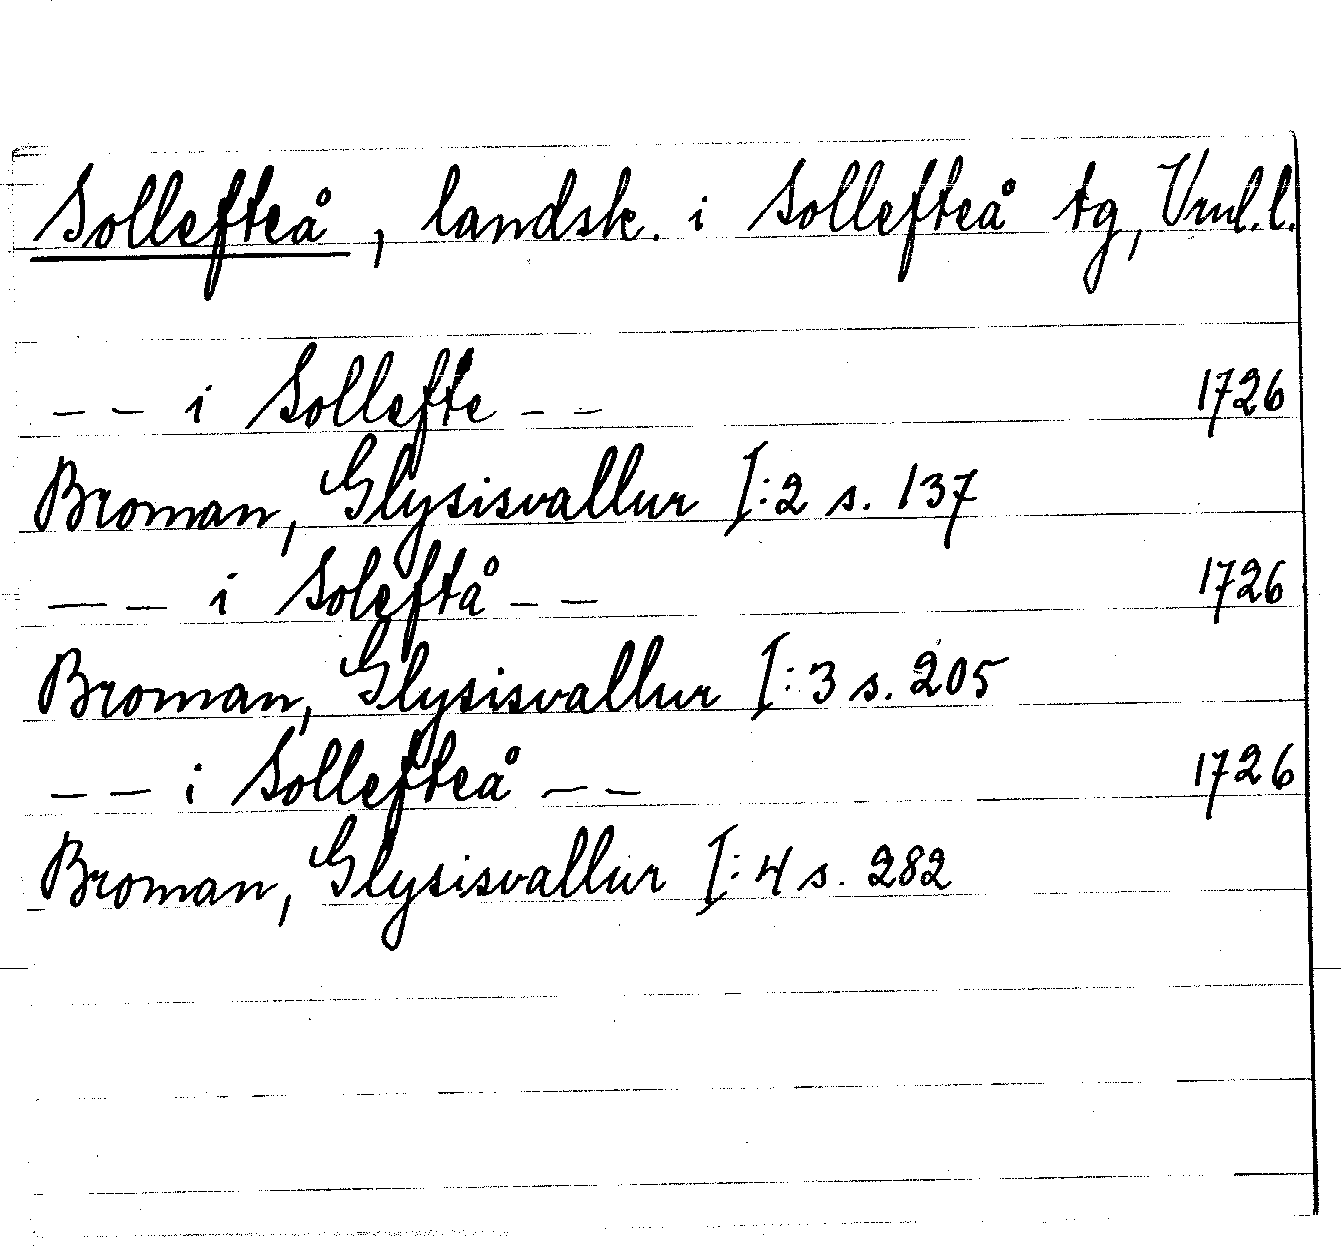 Sollefteå, landsk. i Sollefteå tg, Vnl.l.
– – i Sollefte – – 1726
Broman, Glysisvallur I:2 s. 137
– – i Soleftå – – 1726
Broman, Glysisvallur I:3 s. 205
– – i Sollefteå – – 1726
Broman, Glysisvallur I:4 s. 282